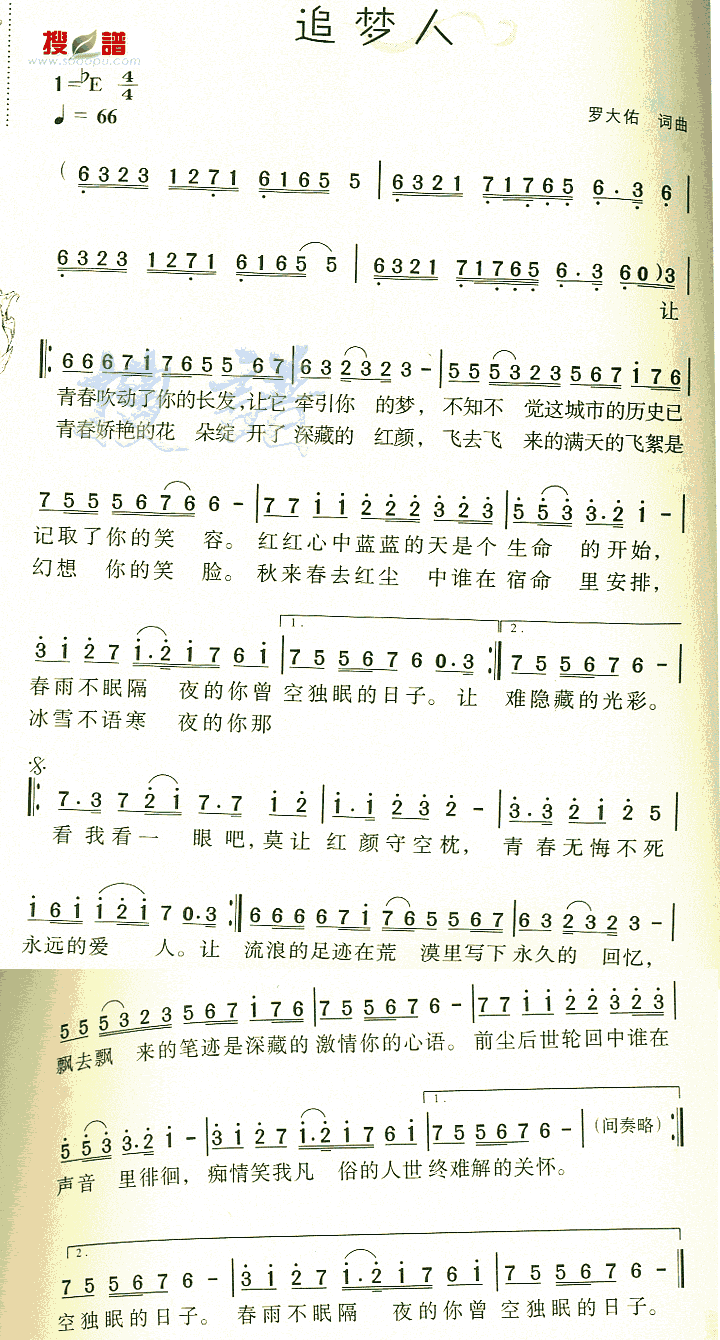 追梦人
搜谱
www.sooopu.com
1=♭E 4/4
♩= 66
罗大佑 词曲
( 6323 1271 6165 5 | 6321 71765 6.3 6 |
6323 1271 6165 5 | 6321 71765 6.3 60)3 |
让
‖: 6667i7655 67 | 63 2323 - | 5553235 67i76 |
青春吹动了你的长发,让它 牵引你 的梦, 不知不 觉这城市的历史已
青春娇艳的花 朵绽 开了 深藏的 红颜, 飞去飞 来的满天的飞絮是
7 5 5 5 6 7 6 6 - | 7 7 i i 2 2 2 3 2 3 | 5 5 3 3.2 i - |
记取了你的笑 容。 红红心中蓝蓝的天是个 生命 的开始,
幻想 你的笑 脸。 秋来春去红尘 中谁在 宿命 里安排,
1. 2.
3 i 2 7 i.2 i 7 6 i | 7 5 5 6 7 6 0.3 :‖ 7 5 5 6 7 6 - |
春雨不眠隔 夜的你曾 空独眠的日子。 让 难隐藏的光彩。
冰雪不语寒 夜的你那
‖: 7.3 7 2 i 7.7 i 2 | i.i 2 3 2 - | 3.3 2 i 2 5 |
看我看一 眼吧,莫让 红颜守空枕, 青春无悔不死
i 6 i i 2 i 7 0.3 :‖ 6 6 6 6 7 i 7 6 5 5 6 7 | 6 3 2 3 2 3 - |
永远的爱 人。让 流浪的足迹在荒 漠里写下 永久的 回忆,
5 5 5 3 2 3 5 6 7 i 7 6 | 7 5 5 6 7 6 - | 7 7 i i 2 2 3 2 3 |
飘去飘 来的笔迹是深藏的 激情你的心语。 前尘后世轮回中谁在
1.
5 5 3 3.2 i - | 3 i 2 7 i.2 i 7 6 i | 7 5 5 6 7 6 - | (间奏略) :‖
声音 里徘徊, 痴情笑我凡 俗的人世 终难解的关怀。
2.
7 5 5 6 7 6 - | 3 i 2 7 i.2 i 7 6 i | 7 5 5 6 7 6 - |
空独眠的日子。 春雨不眠隔 夜的你曾 空独眠的日子。